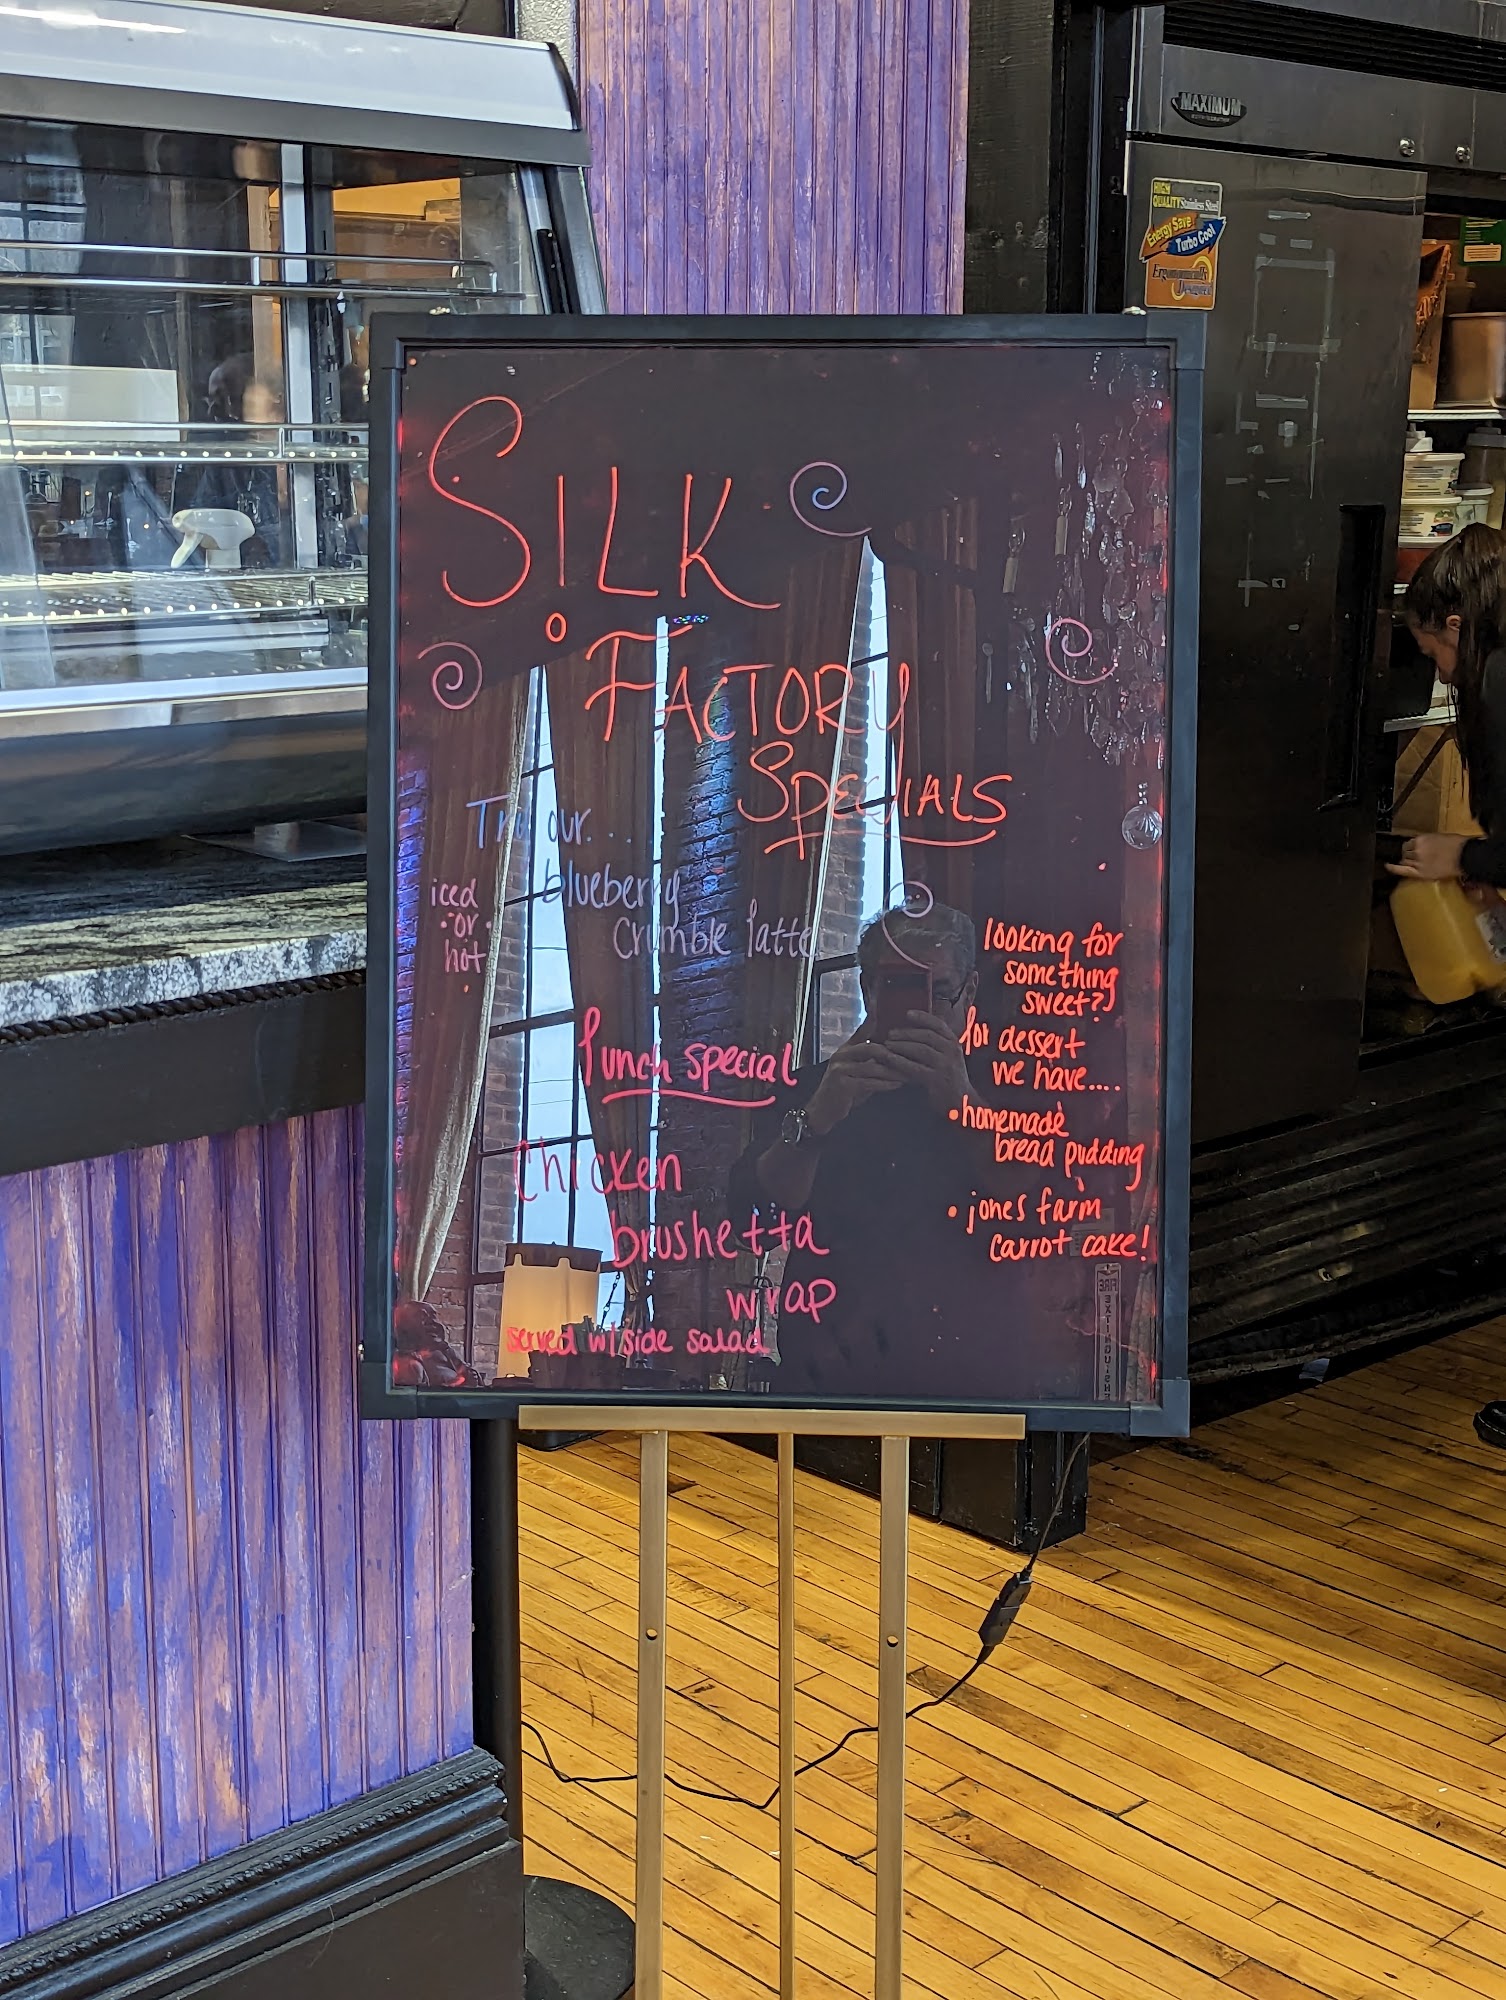 MAXIMUM
REFRIGERATION
HIGH
QUALITY Stainless Steel
Energy Save
Turbo Cool
Ergonomically
Designed
SiLK
FACTORY
SPECIALS
Try our...
blueberry
crumble latte
iced
or
hot
lunch special
Chicken
brushetta
wrap
served w/ side salad
looking for
something
sweet?
for dessert
we have....
• homemade
bread pudding
• jones farm
carrot cake!
FIRE EXTINGUISHE